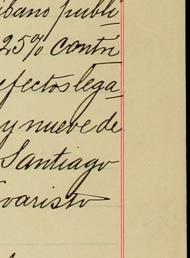 ibano públi
25% contri
efectos lega
y nueve de
Santiago
varisto